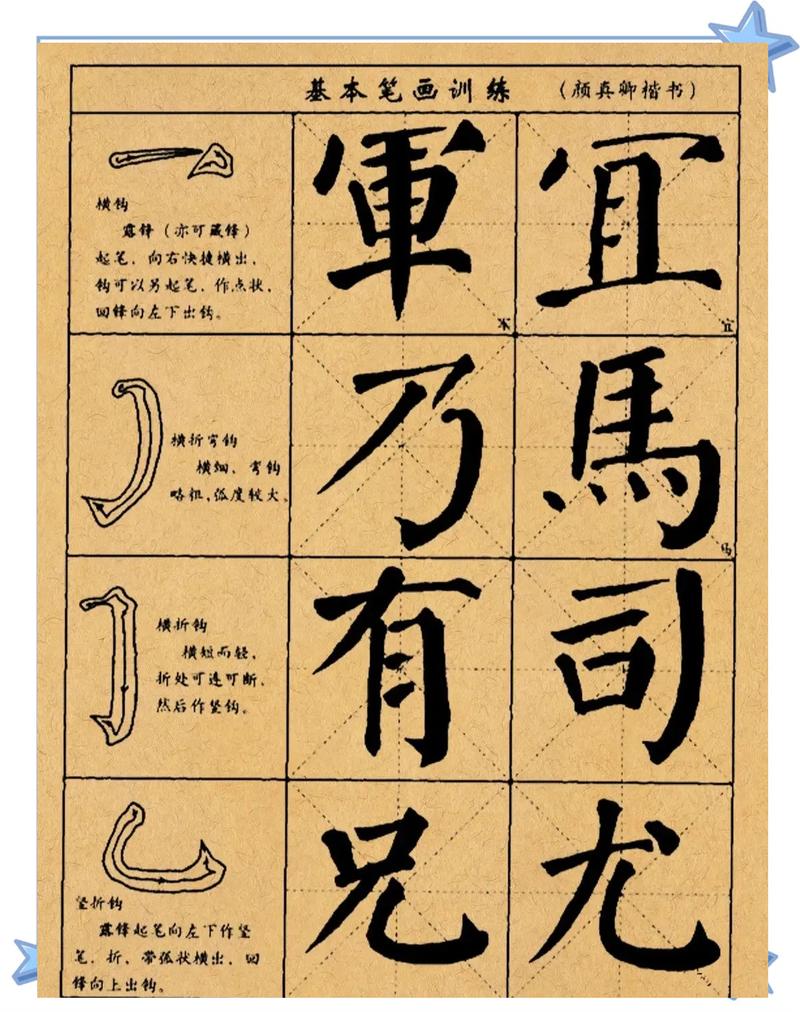 基本笔画训练 （颜真卿楷书）
横钩
露锋（亦可藏锋）
起笔，向右快捷横出，
钩可以另起笔，作点状，
回锋向左下出钩。
軍
军
宜
宜
横折弯钩
横细，弯钩
略粗，弧度较大。
乃
馬
马
横折钩
横短而轻，
折处可连可断，
然后作竖钩。
有
司
竖折钩
露锋起笔向左下作竖
笔，折，带弧状横出，回
锋向上出钩。
兄
尤